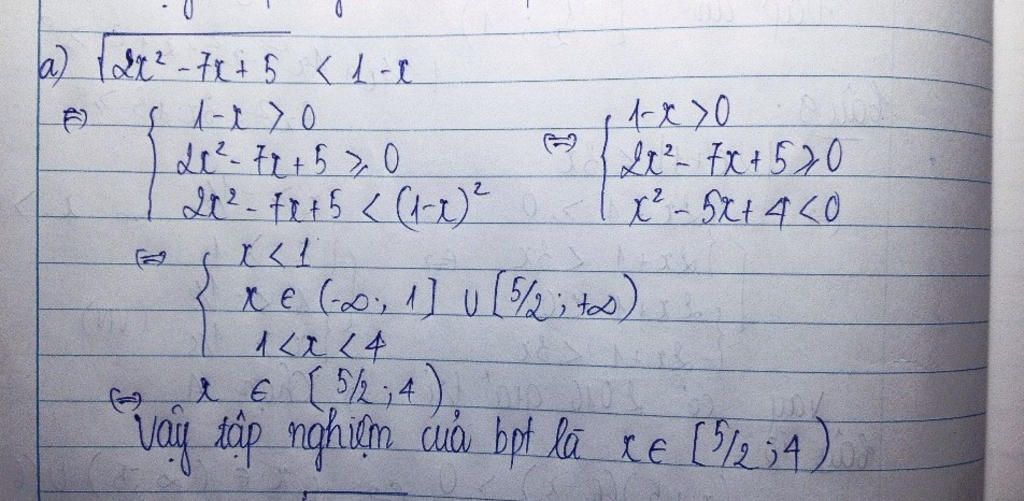 a) √(2x² - 7x + 5) < 1 - x
⇔ { 1 - x > 0 ⇔ { 1 - x > 0
2x² - 7x + 5 ⩾ 0 2x² - 7x + 5 ⩾ 0
2x² - 7x + 5 < (1-x)² x² - 5x + 4 < 0
⇔ { x < 1
x ∈ (-∞; 1] ∪ [5/2; +∞)
1 < x < 4
⇔ x ∈ [5/2; 4)
Vậy tập nghiệm của bpt là x ∈ [5/2; 4)